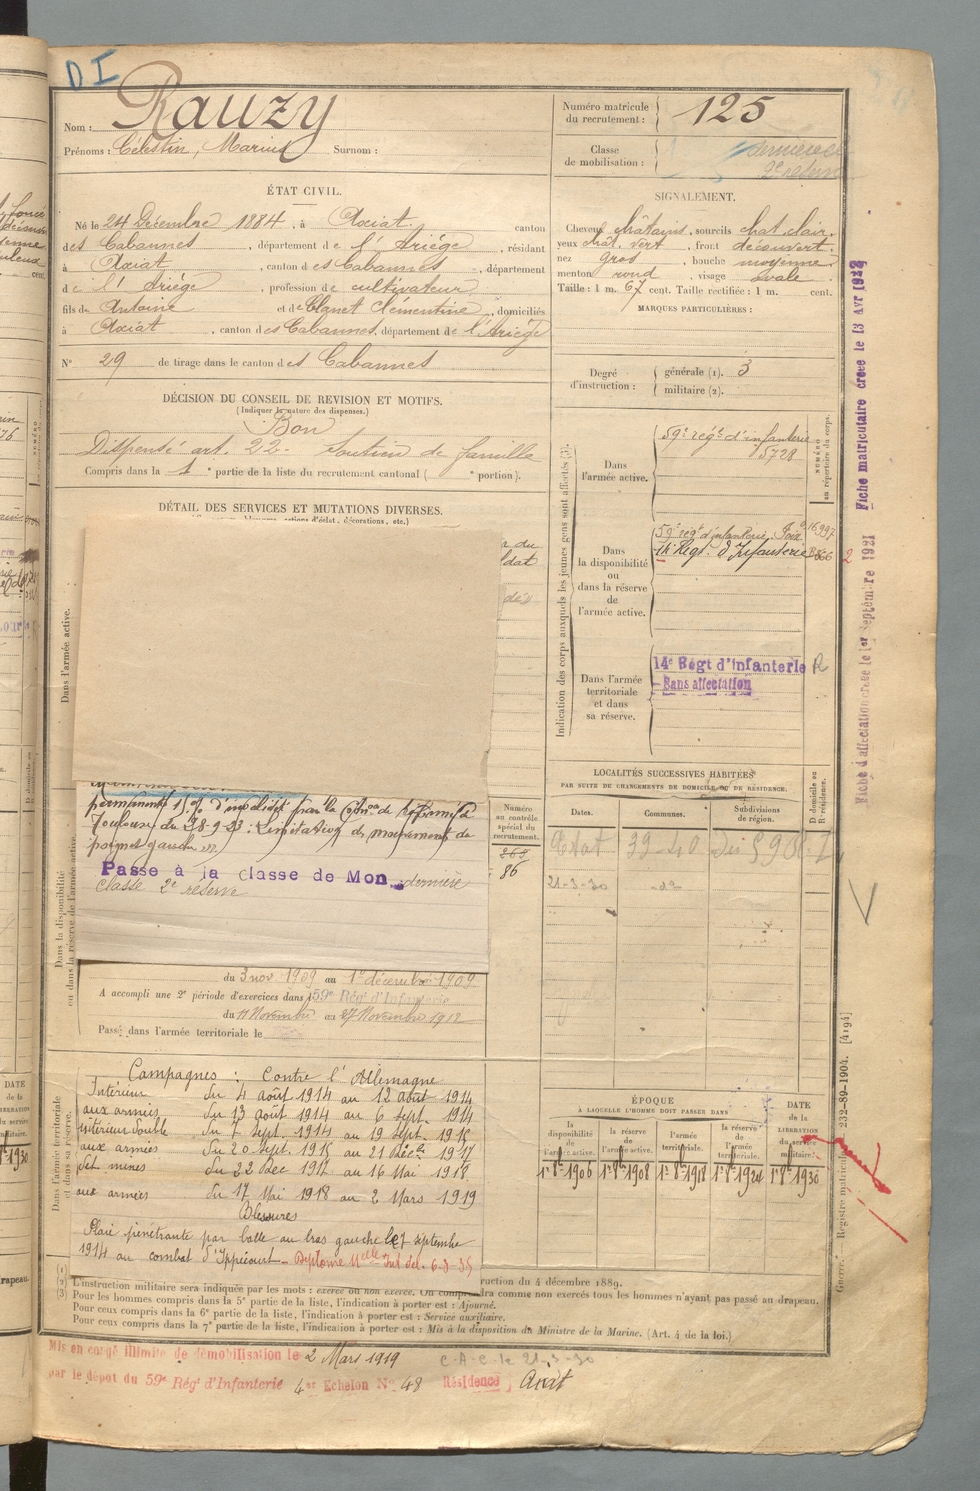 DI
Nom : Rauzy
Prénoms : Célestin, Marius Surnom :
Numéro matricule du recrutement : 125
Classe de mobilisation : dernière
ÉTAT CIVIL.
Né le 24 Décembre 1884, à Axiat, canton
des Cabannes, département de l'Ariège, résidant
à Axiat, canton des Cabannes, département
de l'Ariège, profession de cultivateur
fils de Antoine et de Clémentine, domiciliés
à Axiat, canton des Cabannes, département de l'Ariège
N° 29 de tirage dans le canton des Cabannes
SIGNALEMENT.
Cheveux châtains, sourcils chat. clair.
yeux chat. vert, front découvert.
nez gros, bouche moyenne
menton rond, visage ovale
Taille : 1 m. 67 cent. Taille rectifiée : 1 m. cent.
MARQUES PARTICULIÈRES :
Degré d'instruction : générale (1). 3
militaire (2).
DÉCISION DU CONSEIL DE REVISION ET MOTIFS.
(Indiquer la nature des dispenses.)
Bon
Dispensé art. 22. Soutien de famille
Compris dans la 1 e partie de la liste du recrutement cantonal ( e portion).
DÉTAIL DES SERVICES ET MUTATIONS DIVERSES.
Dans l'armée active.
permanente
Toulouse du 28-9-23 : Limitation de mouvement de
poignet gauche
Passe à la classe de Mon dernière
classe 2e réserve
Dans la disponibilité ou dans la réserve de l'armée active.
du 3 nov 1909 au 1er décembre 1909
A accompli une 2e période d'exercices dans le 59e Régt d'Infanterie
du 11 Novembre au 27 Novembre 1912
Passé dans l'armée territoriale le
Dans l'armée territoriale et dans sa réserve.
Campagnes : Contre l'Allemagne
Intérieur du 4 août 1914 au 12 août 1914
aux armées du 13 août 1914 au 6 sept. 1914
intérieur double du 7 sept. 1914 au 19 sept. 1915
aux armées du 20 sept. 1915 au 21 Déc. 1917
Dét. mines du 22 Dec 1917 au 16 Mai 1918
aux armées du 17 Mai 1918 au 2 Mars 1919
Blessures
Plaie pénétrante par balle au bras gauche le 7 septembre
1914 au combat d'Ippécourt - Diplôme
Indication des corps auxquels les jeunes gens sont affectés (3).
NUMÉRO au répertoire du corps.
Dans l'armée active.
59e régt d'infanterie
5728
Dans la disponibilité ou dans la réserve de l'armée active.
59e régt d'infanterie. Foix 16,997
14 Régt d'Infanterie
Dans l'armée territoriale et dans sa réserve.
14e Régt d'Infanterie R
Sans affectation
LOCALITÉS SUCCESSIVES HABITÉES
PAR SUITE DE CHANGEMENTS DE DOMICILE OU DE RÉSIDENCE.
Numéro au contrôle spécial du recrutement.
Dates. Communes. Subdivisions de région. D domicile ou R résidence.
86
21-3-30 -do-
ÉPOQUE
À LAQUELLE L'HOMME DOIT PASSER DANS
la disponibilité de l'armée active. la réserve de l'armée active. l'armée territoriale. la réserve de l'armée territoriale. DATE de la LIBÉRATION du service militaire.
1er 8bre 1906 1er 8bre 1908 1er 8bre 1918 1er 8bre 1924 1er 8bre 1930
Fiche matriculaire créée le 13 Avr 1922
Fiche d'affectation créée le 1er Septembre 1921
Registre matricule 232-89-1904. [4194]
(2) L'instruction militaire sera indiquée par les mots : exercé ou non exercé. On comprendra comme non exercés tous les hommes n'ayant pas passé au drapeau.
(3) Pour les hommes compris dans la 5e partie de la liste, l'indication à porter est : Ajourné.
Pour ceux compris dans la 6e partie de la liste, l'indication à porter est : Service auxiliaire.
Pour ceux compris dans la 7e partie de la liste, l'indication à porter est : Mis à la disposition du Ministre de la Marine. (Art. 4 de la loi.)
Mis en congé illimité de démobilisation le 2 Mars 1919
C.A.C. le 21-3-30
par le dépot du 59e Régt d'Infanterie 4e Echelon N° 48 Résidence, Axiat